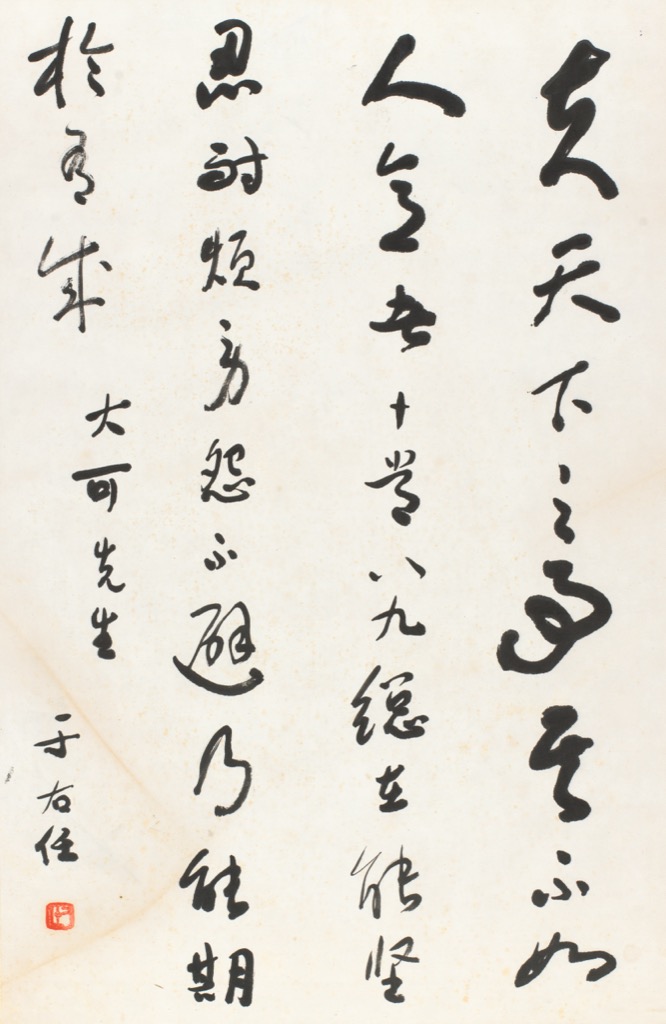 夫天下之事其不如
人意者十常八九總在能堅
忍耐煩勞怨不避乃能期
於有成
大可先生
于右任